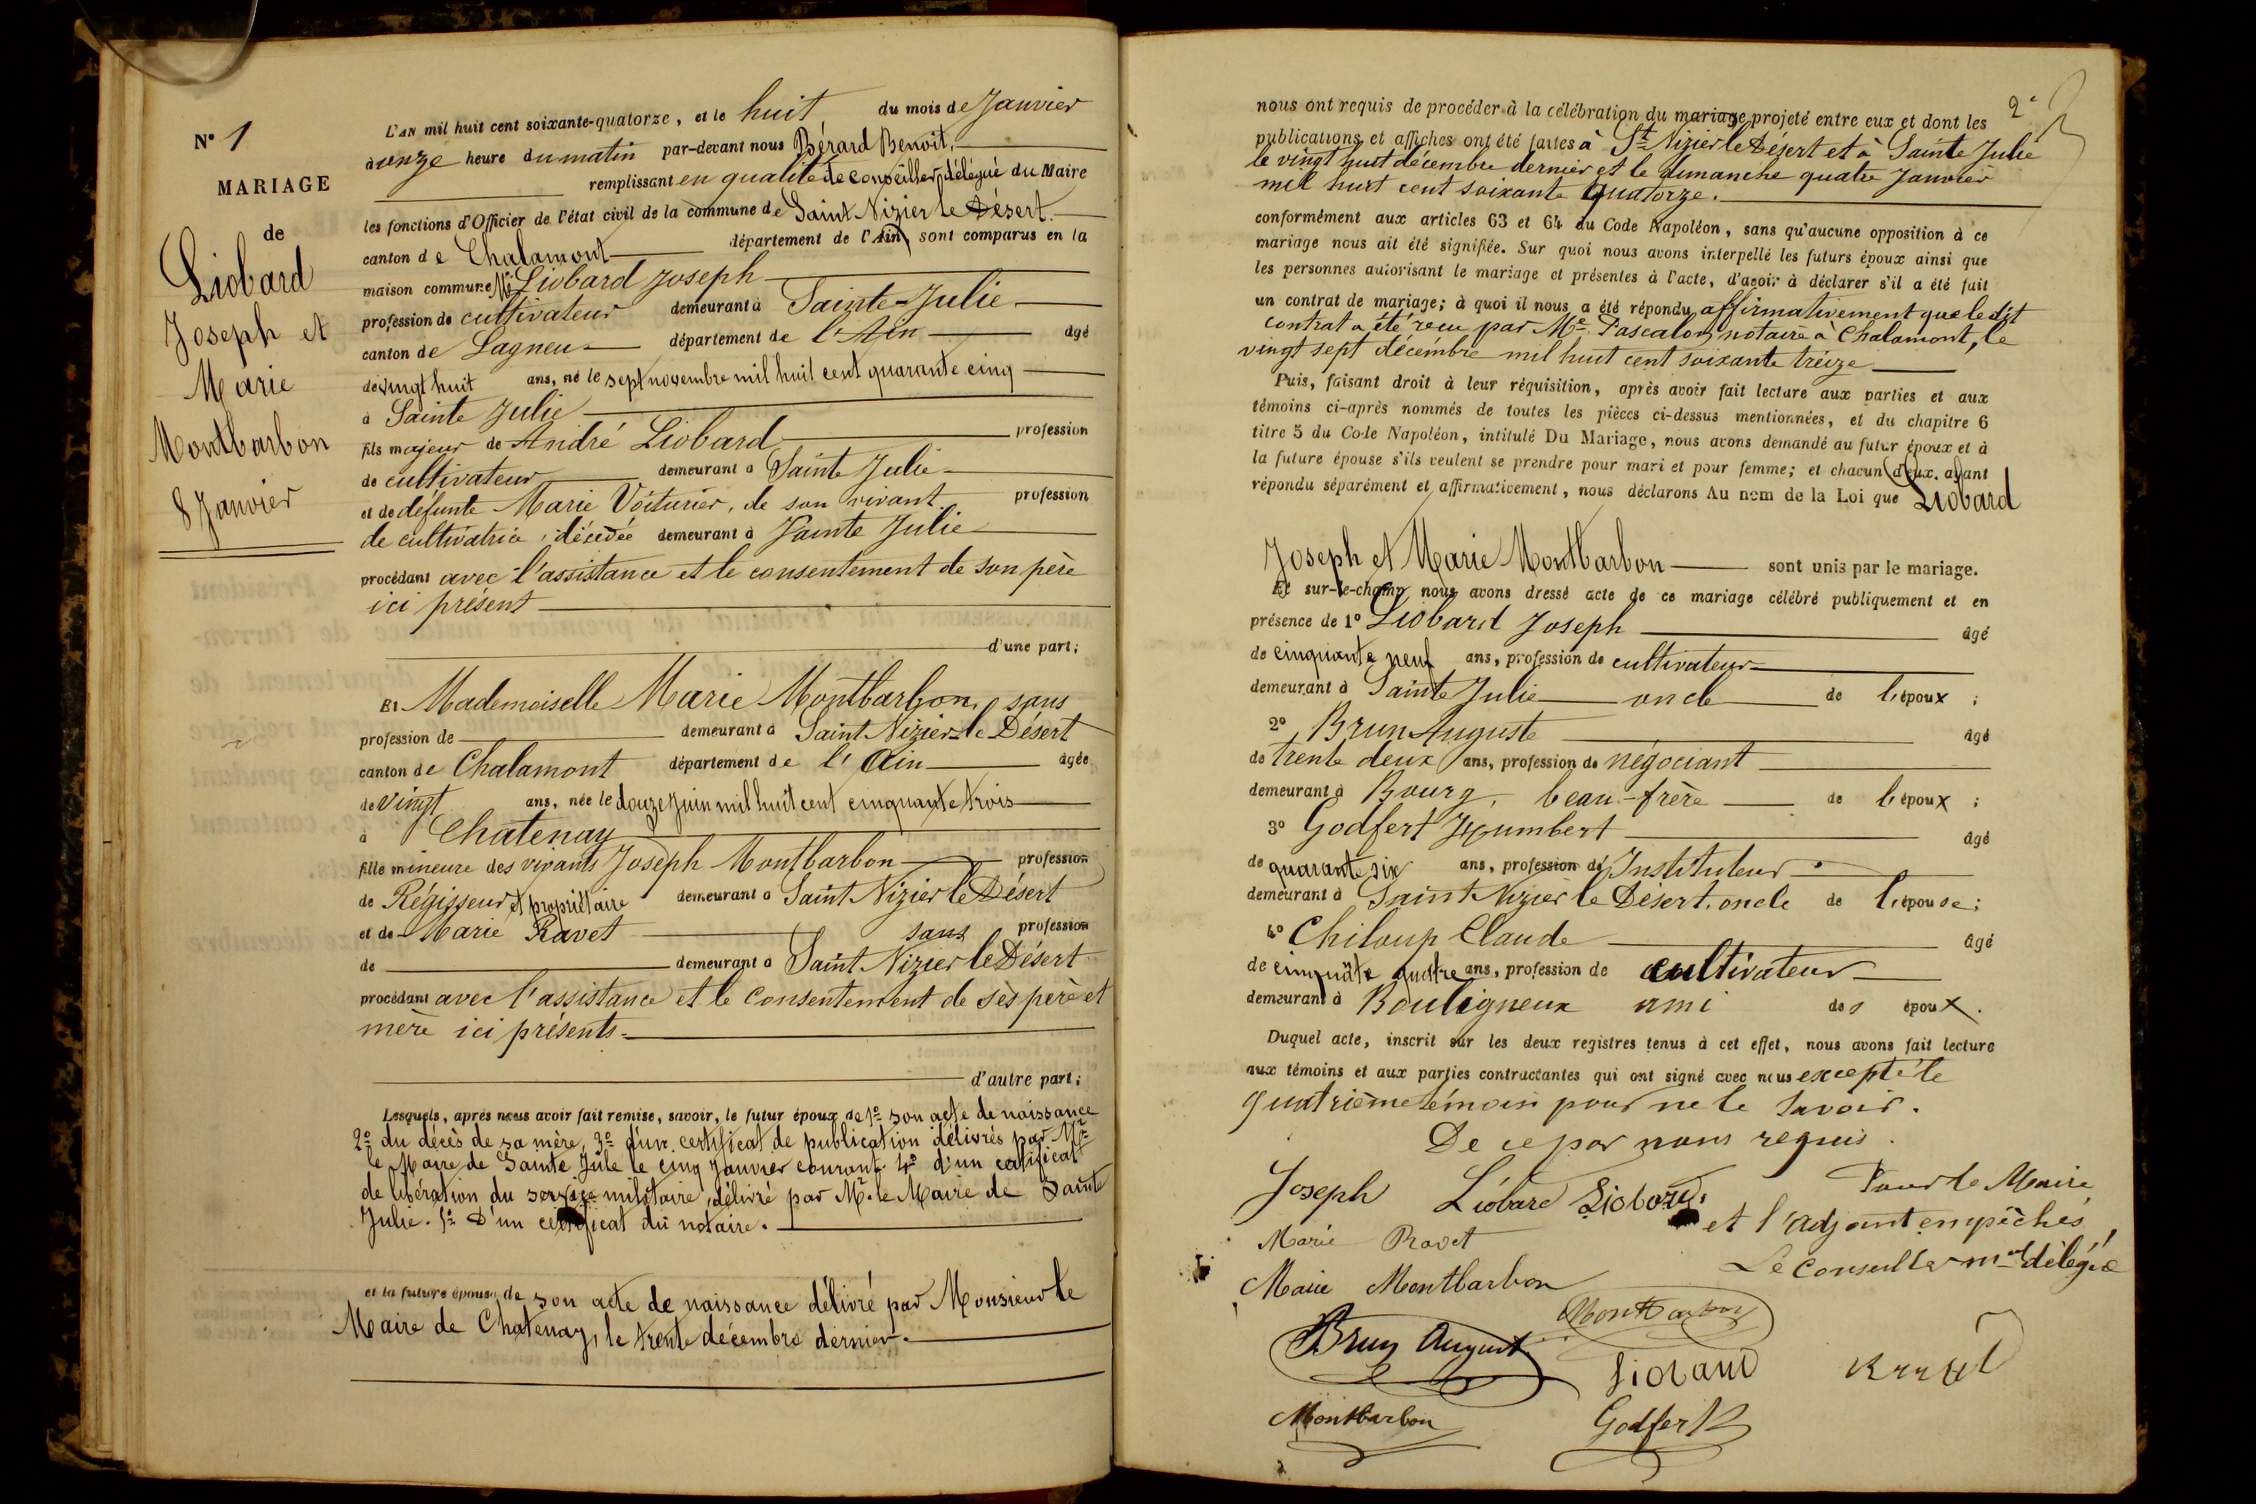 N° 1
MARIAGE
de
Liobard
Joseph et
Marie
Montbarbon
8 Janvier
L'AN mil huit cent soixante-quatorze, et le huit du mois de Janvier
à onze heure du matin par-devant nous Bérard Benoit,
remplissant en qualité de conseiller délégué du Maire
les fonctions d'Officier de l'état civil de la commune de Saint Nizier le Désert.
canton de Chalamont département de l'Ain, sont comparus en la
maison commune Mr Liobard Joseph
profession de cultivateur demeurant à Sainte-Julie
canton de Lagneu département de l'Ain âgé
de vingt huit ans, né le sept novembre mil huit cent quarante cinq
à Sainte Julie
fils majeur de André Liobard profession
de cultivateur demeurant à Sainte Julie
et de défunte Marie Voiturier, de son vivant profession
de cultivatrice, décédée demeurant à Sainte Julie
procédant avec l'assistance et le consentement de son père
ici présent
d'une part;
Et Mademoiselle Marie Montbarbon, sans
profession de demeurant à Saint Nizier le Désert
canton de Chalamont département de l'Ain âgée
de vingt ans, née le douze Juin mil huit cent cinquante trois
à Chatenay
fille mineure des vivants Joseph Montbarbon profession
de Régisseur et propriétaire demeurant à Saint Nizier le Désert
et de Marie Ravet sans profession
de demeurant à Saint Nizier le Désert
procédant avec l'assistance et le consentement de ses père et
mère ici présents
d'autre part;
Lesquels, après nous avoir fait remise, savoir, le futur époux de 1° son acte de naissance
2° du décès de sa mère, 3° d'un certificat de publication délivrés par Mr
le Maire de Sainte Julie le cinq Janvier courant 4° d'un certificat
de libération du service militaire, délivré par Mr. le Maire de Sainte
Julie. 5° D'un certificat du notaire.
et la future épouse de son acte de naissance délivré par Monsieur le
Maire de Chatenay, le trente décembre dernier.
2e
nous ont requis de procéder à la célébration du mariage projeté entre eux et dont les
publications et affiches ont été faites à St Nizier le Désert et à Sainte Julie
le vingt huit décembre dernier et le dimanche quatre Janvier
mil huit cent soixante quatorze.
conformément aux articles 63 et 64 du Code Napoléon, sans qu'aucune opposition à ce
mariage nous ait été signifiée. Sur quoi nous avons interpellé les futurs époux ainsi que
les personnes autorisant le mariage et présentes à l'acte, d'avoir à déclarer s'il a été fait
un contrat de mariage; à quoi il nous a été répondu affirmativement que ledit
contrat a été reçu par Me Pascalon, notaire à Chalamont, le
vingt sept décembre mil huit cent soixante treize
Puis, faisant droit à leur réquisition, après avoir fait lecture aux parties et aux
témoins ci-après nommés de toutes les pièces ci-dessus mentionnées, et du chapitre 6
titre 5 du Code Napoléon, intitulé Du Mariage, nous avons demandé au futur époux et à
la future épouse s'ils veulent se prendre pour mari et pour femme; et chacun d'eux ayant
répondu séparément et affirmativement, nous déclarons Au nom de la Loi que Liobard
Joseph et Marie Montbarbon sont unis par le mariage.
Et sur-le-champ nous avons dressé acte de ce mariage célébré publiquement et en
présence de 1° Liobard Joseph âgé
de cinquante neuf ans, profession de cultivateur
demeurant à Sainte Julie oncle de l'époux;
2° Brun Auguste âgé
de trente deux ans, profession de négociant
demeurant à Bourg, beau-frère de l'époux;
3° Godfert Humbert âgé
de quarante six ans, profession de Instituteur
demeurant à Saint Nizier le Désert, oncle de l'épouse;
4° Chiloup Claude âgé
de cinquãte quatre ans, profession de cultivateur
demeurant à Bouligneux ami des époux.
Duquel acte, inscrit sur les deux registres tenus à cet effet, nous avons fait lecture
aux témoins et aux parties contractantes qui ont signé avec nous excepté le
quatrième témoin pour ne le savoir.
De ce par nous requis.
Joseph Liobard Liobard
Pour le Maire
et l'adjoint empêchés
Marie Ravet
Le Conseiller mal délégué
Marie Montbarbon
Montbarbon
Brun August
Montbarbon
Godfert